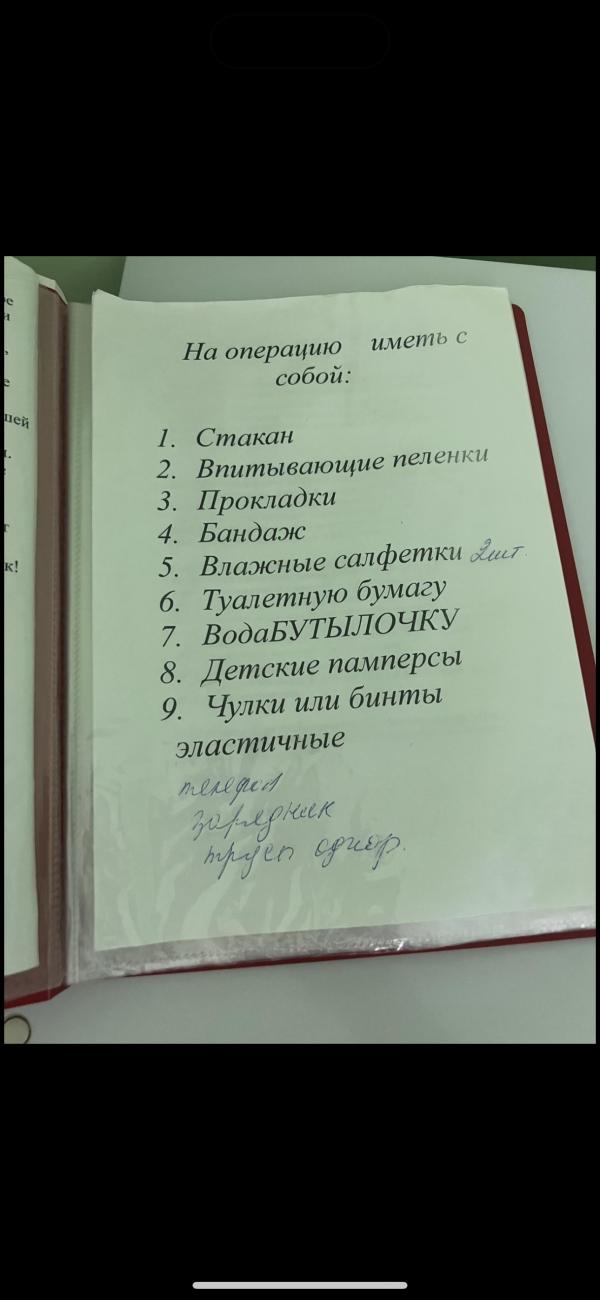 На операцию иметь с
собой:
1. Стакан
2. Впитывающие пеленки
3. Прокладки
4. Бандаж
5. Влажные салфетки 2шт.
6. Туалетную бумагу
7. ВодаБУТЫЛОЧКУ
8. Детские памперсы
9. Чулки или бинты
эластичные
телефон
зарядник
трусы однор.
шей
к!